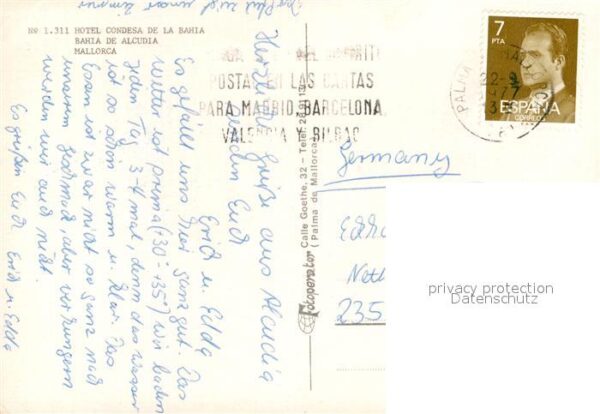 No 1.311 HOTEL CONDESA DE LA BAHIA
BAHIA DE ALCUDIA
MALLORCA
Herzliche Grüße aus Alcudia
senden Euch
Erich u. Edda
Es gefällt uns hier ganz gut. Das
Wetter ist prima (+30°-+35°) Wir baden
jeden Tag 3-4 mal, denn das Wasser
ist so schön warm u. klar. Das
Essen ist zwar nicht so ganz nach
unserem Geschmack, aber verhungern
werden wir auch nicht.
Es grüßen Euch Erich u. Edda
POSTAL EN LAS CARTAS
PARA MADRID, BARCELONA,
VALENCIA Y BILBAO
7
PTA
ESPAÑA
CORREOS
PALMA
Fotoperator Calle Goethe, 32 - Telef.
(Palma de Mallorca)
Germany
235
privacy protection
Datenschutz